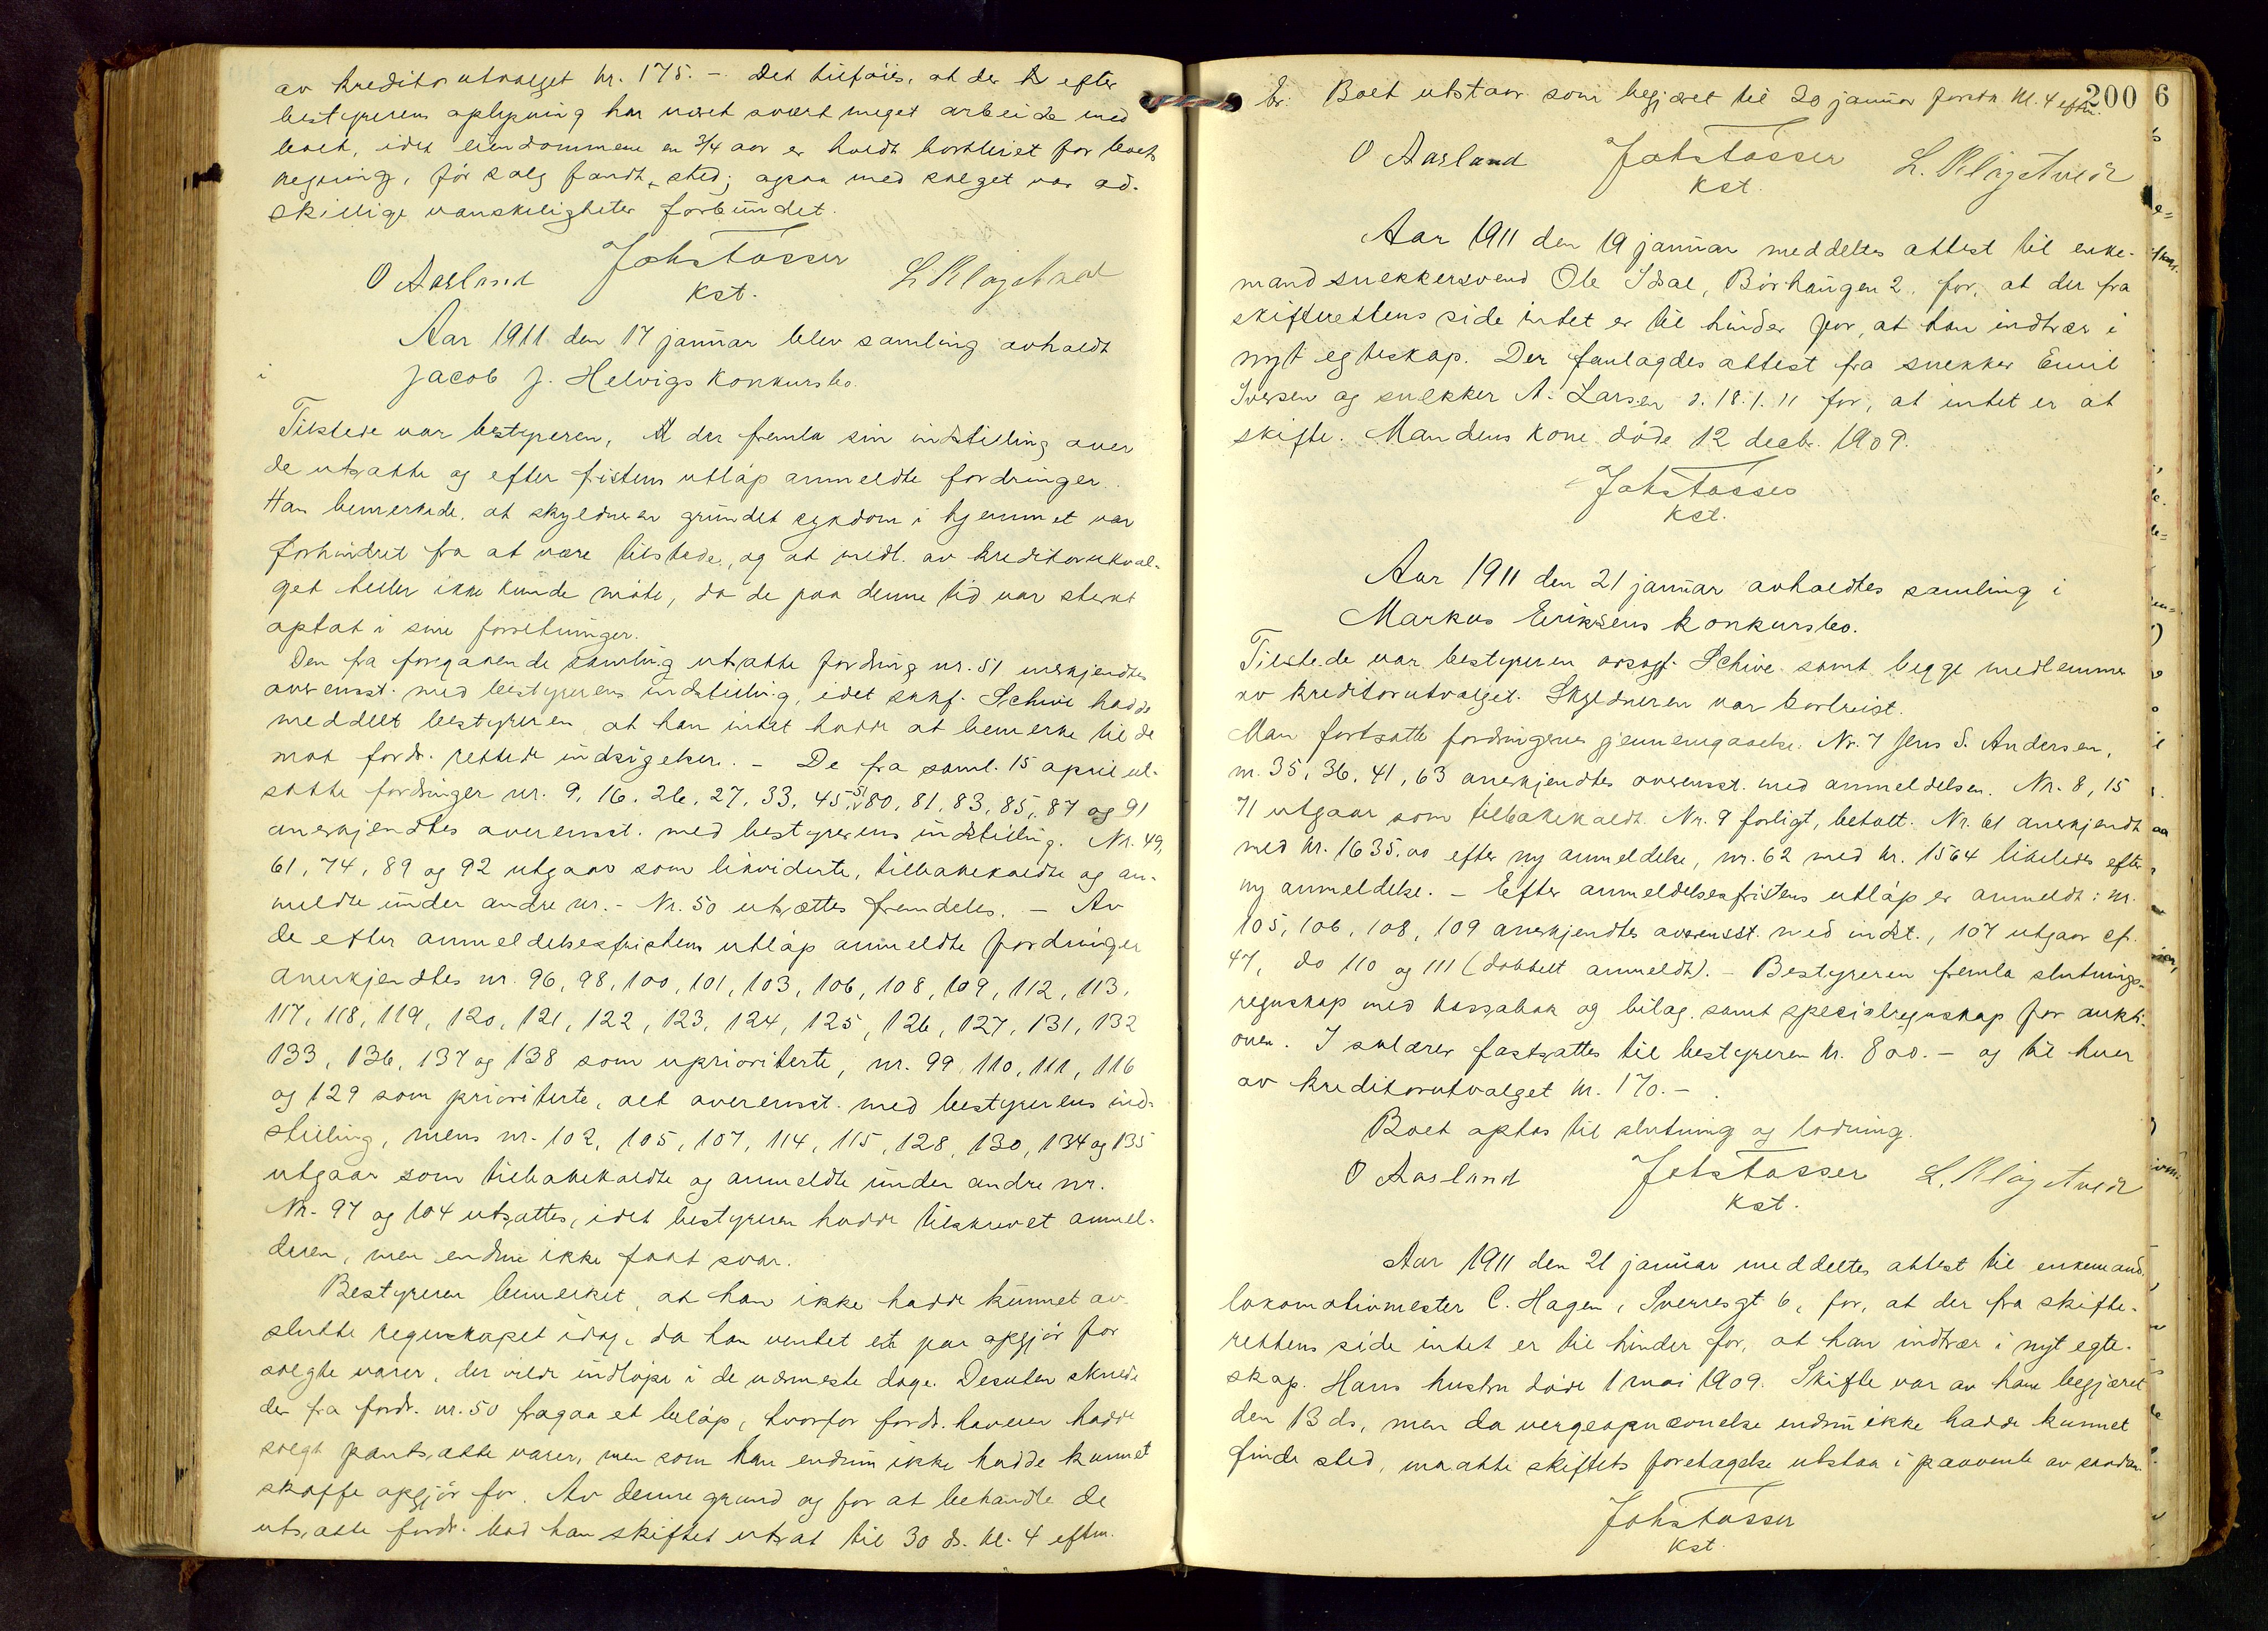 av kreditorutvalget kr. 175.- Det tilføies, at der efter
bestyrerens oplysning har været svært meget arbeide med
boet, idet eiendommene en 3/4 aar er holdt bortleiet for boets
regning, før salg fandt sted; ogsaa med salget var ad-
skillige vanskeligheter forbundet.
O Aasland Johs Tosser L. Klugstvedt
Kst.
Aar 1911 den 17 januar blev samling avholdt
i Jacob J. Helvigs konkursbo.
Tilstede var bestyreren, der fremla sin indstilling over
de utsatte og efter fristens utløp anmeldte fordringer.
Han bemerkede, at skyldneren grundet sykdom i hjemmet var
forhindret fra at være tilstede, og at medl. av kreditorutval-
get heller ikke kunde møte, da de paa denne tid var sterkt
optat i sine forretninger.
Den fra foregaaende samling utsatte fordring nr. 51 anerkjendtes
overensst. med bestyrerens indstilling, idet sakf. Schive hadde
meddelt bestyreren at han intet hadde at bemerke til de
mot fordr. rettede indsigelser. - De fra saml. 15 april ut-
satte fordringer nr. 9, 16, 26, 27, 33, 45, 51, 80, 81, 83, 85, 87 og 91
anerkjendtes overensst. med bestyrerens indstilling. Nr. 49,
61, 74, 89 og 92 utgaar som likviderte, tilbakekaldte og an-
meldte under andre nr. - Nr. 50 utsættes fremdeles. - Av
de efter anmeldelsesfristens utløp anmeldte fordringer
anerkjendtes nr. 96, 98, 100, 101, 103, 106, 108, 109, 112, 113,
117, 118, 119, 120, 121, 122, 123, 124, 125, 126, 127, 131, 132
133, 136, 137 og 138 som uprioriterte, nr. 99, 110, 111, 116
og 129 som prioriterte, alt overensst. med bestyrerens ind-
stilling, mens nr. 102, 105, 107, 114, 115, 128, 130, 134 og 135
utgaar som tilbakekaldte og anmeldte under andre nr.
Nr. 97 og 104 utsattes, idet bestyreren hadde tilskrevet anmel-
deren, men endnu ikke faat svar.
Bestyreren bemerket, at han ikke hadde kunnet av-
slutte regnskapet idag, da han ventet et par opgjør for
solgte varer, der vilde indløpe i de nærmeste dage. Desuten skulde
der fra fordr. nr. 50 fragaa et beløp, hvorfor fordr.haveren hadde
solgt pantsatte varer, men som han endnu ikke hadde kunnet
skaffe opgjør for. Av denne grund og for at behandle de
utsatte fordr. bad han skiftet utsat til 30 ds. kl. 4 efterm.
200 6
Er: Boet utstaar som begjæret til 30 januar førstk. kl. 4 efterm.
O Aasland Johs Tosser L. Klugstvedt
Kst.
Aar 1911 den 19 januar meddeltes attest til enke-
mand snekkersvend Ole Idsal, Børhaugen 2, for, at der fra
skifterettens side intet er til hinder for, at han indtrær i
nyt egteskap. Der fremlagdes attest fra snekker Emil
Iversen og snekker A. Larsen d. 18.1.11 for, at intet er at
skifte. Mandens kone døde 12 decbr. 1909.
Johs Tosser
Kst.
Aar 1911 den 21 januar avholdtes samling i
Markus Eriksens konkursbo.
Tilstede var bestyreren orsagf. Schive samt begge medlemmer
av kreditorutvalget. Skyldneren var bortreist.
Man fortsatte fordringernes gjennemgaaelse. Nr. 7 Jens S. Andersen,
nr. 35, 36, 41, 63 anerkjendtes overensst. med anmeldelsen. Nr. 8, 15
71 utgaar som tilbakekaldt. Nr. 9 forligt, betalt. Nr. 61 anerkjendt
med kr. 1635.00 efter ny anmeldelse, nr. 62 med kr. 1564 likeledes efter
ny anmeldelse. - Efter anmeldelsesfristens utløp er anmeldt: nr.
105, 106, 108, 109 anerkjendtes overensst. med indst., 107 utgaar cfr.
47, do 110 og 111 (dobbelt anmeldt). - Bestyreren fremla slutnings-
regnskap med kassabok og bilag, samt specialregnskap for aukti-
onen. I salærer fastsattes til bestyreren kr. 800.- og til hver
av kreditorutvalget kr. 170.-
Boet optas til slutning og lodning.
O Aasland Johs Tosser L. Klugstvedt
Kst.
Aar 1911 den 21 januar meddeltes attest til enkemand
lokomotivmester C. Hagen, Sverresgt 6, for, at der fra skifte-
rettens side intet er til hinder for, at han indtrær i nyt egte-
skap. Hans hustru døde 1 mai 1909. Skifte var av ham begjæret
den 13 ds, men da vergeopnævnelse endnu ikke hadde kunnet
finde sted, maatte skiftets foretagelse utstaa i paavente av saadan.
Johs Tosser
Kst.